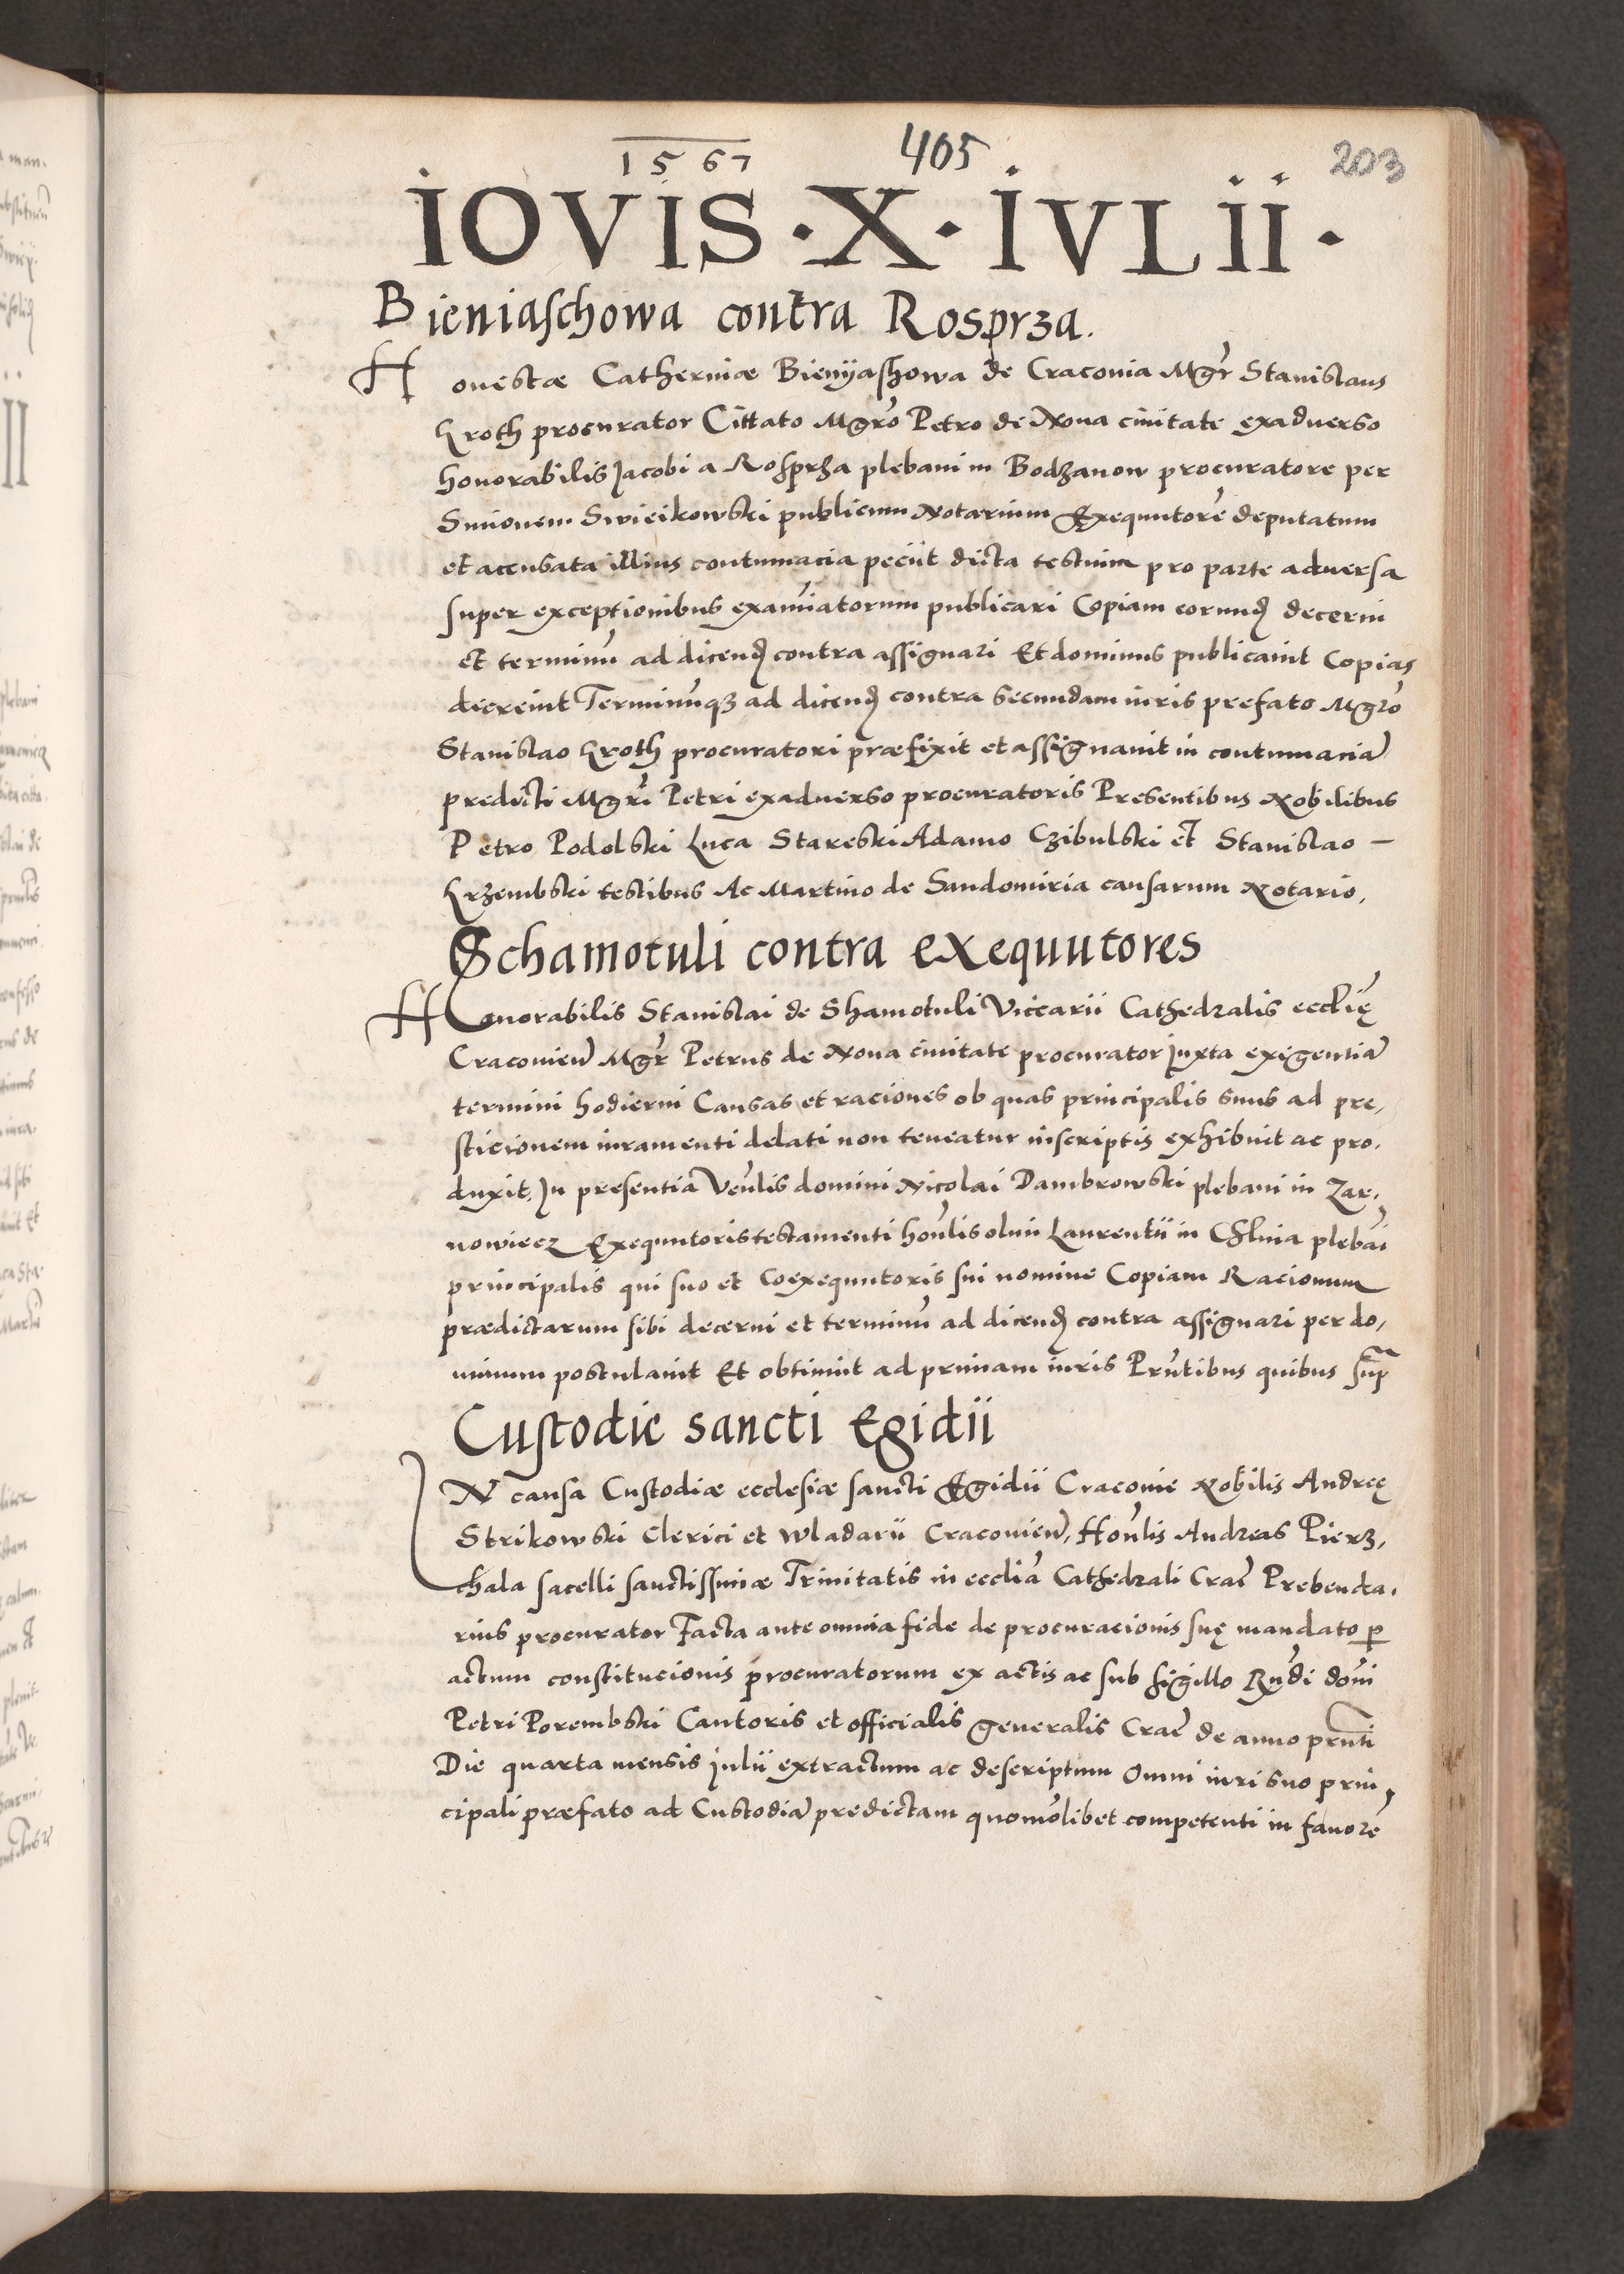 1567
405
203
IOVIS · X · IVLII ·
Bieniaschowa contra Rosprza.
Honestæ Catherinæ Bienyashowa de Craconia Mgr̃ Stanislaus
Kroth procurator Cittato Mgr̃o Petro de Noua ciuitate exaduerso
honorabilis Jacobi a Rosprza plebani in Bodzanow procuratore per
Simonem Swieikowski publicum Notarium Exequutorẽ deputatum
et accusata illius contumacia peciit dicta testium pro parte aduersa
super exceptionibus examinatorum publicari Copiam eorund decerni
et terminũ ad dicend contra assignari Et dominus publicauit Copias
decreuit Terminũqꝫ ad dicend contra secundam iuris prefato Mgr̃o
Stanislao Kroth procuratori præfixit et assignauit in contumaciã
predicti Mgr̃i Petri exaduerso procuratoris Presentibus Nobilibus
Petro Podolski Luca Stareski Adamo Czibulski et Stanislao –
Krzembski testibus Ac Martino de Sandomiria causarum Notario.
Schamotuli contra exequutores
Honorabilis Stanislai de Shamotuli Viccarii Cathedralis eccl̃ię
Craconieñ Mgr̃ Petrus de Noua ciuitate procurator Juxta exigentiã
termini hodierni Causas et raciones ob quas principalis suus ad pre,
sticionem iuramenti delati non teneatur inscriptis exhibuit ac pro,
duxit, In presentiã Veñlis domini Nicolai Dambrowski plebani in Zar,
nowiecz Exequutoris testamenti hoñlis olim Laurentii in Chlina plebãi
principalis qui suo et Coexequutoris sui nomine Copiam Racionum
prædictarum sibi decerni et terminũ ad dicend contra assignari per do,
minum postulauit Et obtinuit ad primam iuris Prñtibus quibus sup̃
Custodie sancti Egidii
IN causa Custodiæ ecclesiæ sancti Egidii Craconie Nobilis Andreę
Strikowski Clerici et Wladarii Craconieñ, Hoñlis Andreas Pierz,
chala sacelli sanctissimæ Trinitatis in eccl̃ia Cathedrali Crac̃ Prebenda,
rius procurator Facta ante omnia fide de procuracionis suę mandato ꝑ
actum constitucionis procuratorum ex actis ac sub sigillo Rñdi dom̃i
Petri Porembski Cantoris et officialis generalis Crac̃ de anno prñti
Die quarta mensis Julii extractum ac descriptum Omni iuri suo prin,
cipali præfato ad Custodiã predictam quomõlibet competenti in fauorẽ